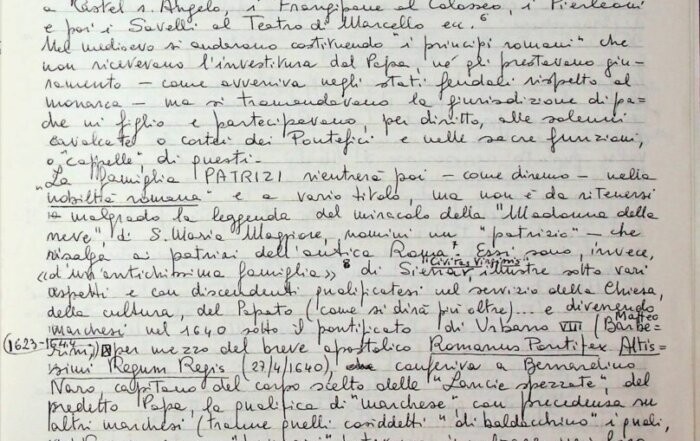 a Castel s. Angelo, i Frangipane al Colosseo, i Pierleoni
e poi i Savelli al Teatro di Marcello ecc. 6
Nel medioevo si andarono costituendo "i principi romani" che
non ricevevano l'investitura dal Papa, né gli prestavano giu-
ramento — come avveniva negli stati feudali rispetto al
monarca — ma si tramandavano la giurisdizione di pa=
dre in figlio e partecipavano, per diritto, alle solenni
cavalcate o cortei dei Pontefici e nelle sacre funzioni,
o "cappelle", di questi.
La famiglia PATRIZI rientrerà poi — come diremo — nella
"nobiltà romana" e a vario titolo, ma non è da ritenersi
— malgrado la leggenda del miracolo della "Madonna della
neve", di S. Maria Maggiore, nomini un "patrizio" — che
risalga ai patrizi dell'antica Roma 7. Essi sono, invece,
"Civitas Virginis"
«d'un'antichissima famiglia» 8 di Siena, illustre sotto vari
aspetti e con discendenti qualificatesi nel servizio della Chiesa,
della cultura, del Papato (come si dirà più oltre)... e divenendo
marchesi nel 1640 sotto il pontificato di Urbano VIII (Matteo Barbe-
(1623-1644)
rini) per mezzo del breve apostolico Romanus Pontifex Altis-
simi Regum Regis (27/4/1640), conferiva a Bernardino
Naro capitano del corpo scelto delle "Lancie spezzate", del
predetto Papa, la qualifica di "marchese", con precedenza su
altri marchesi (tranne quelli cosiddetti "di baldacchino" i quali,